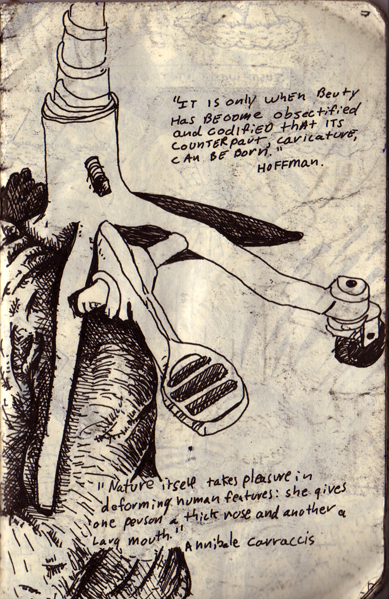 "IT IS only WHEN Beuty
Has BEcomE obsectified
and codified tHAt ITS
COUNTERpaut, caricature,
cAN BE Born."
HOFFman.
"Nature itself takes pleasure in
deforming human features: she gives
one person a thick nose and another a
Larg mouth."
Annibale Carraccis